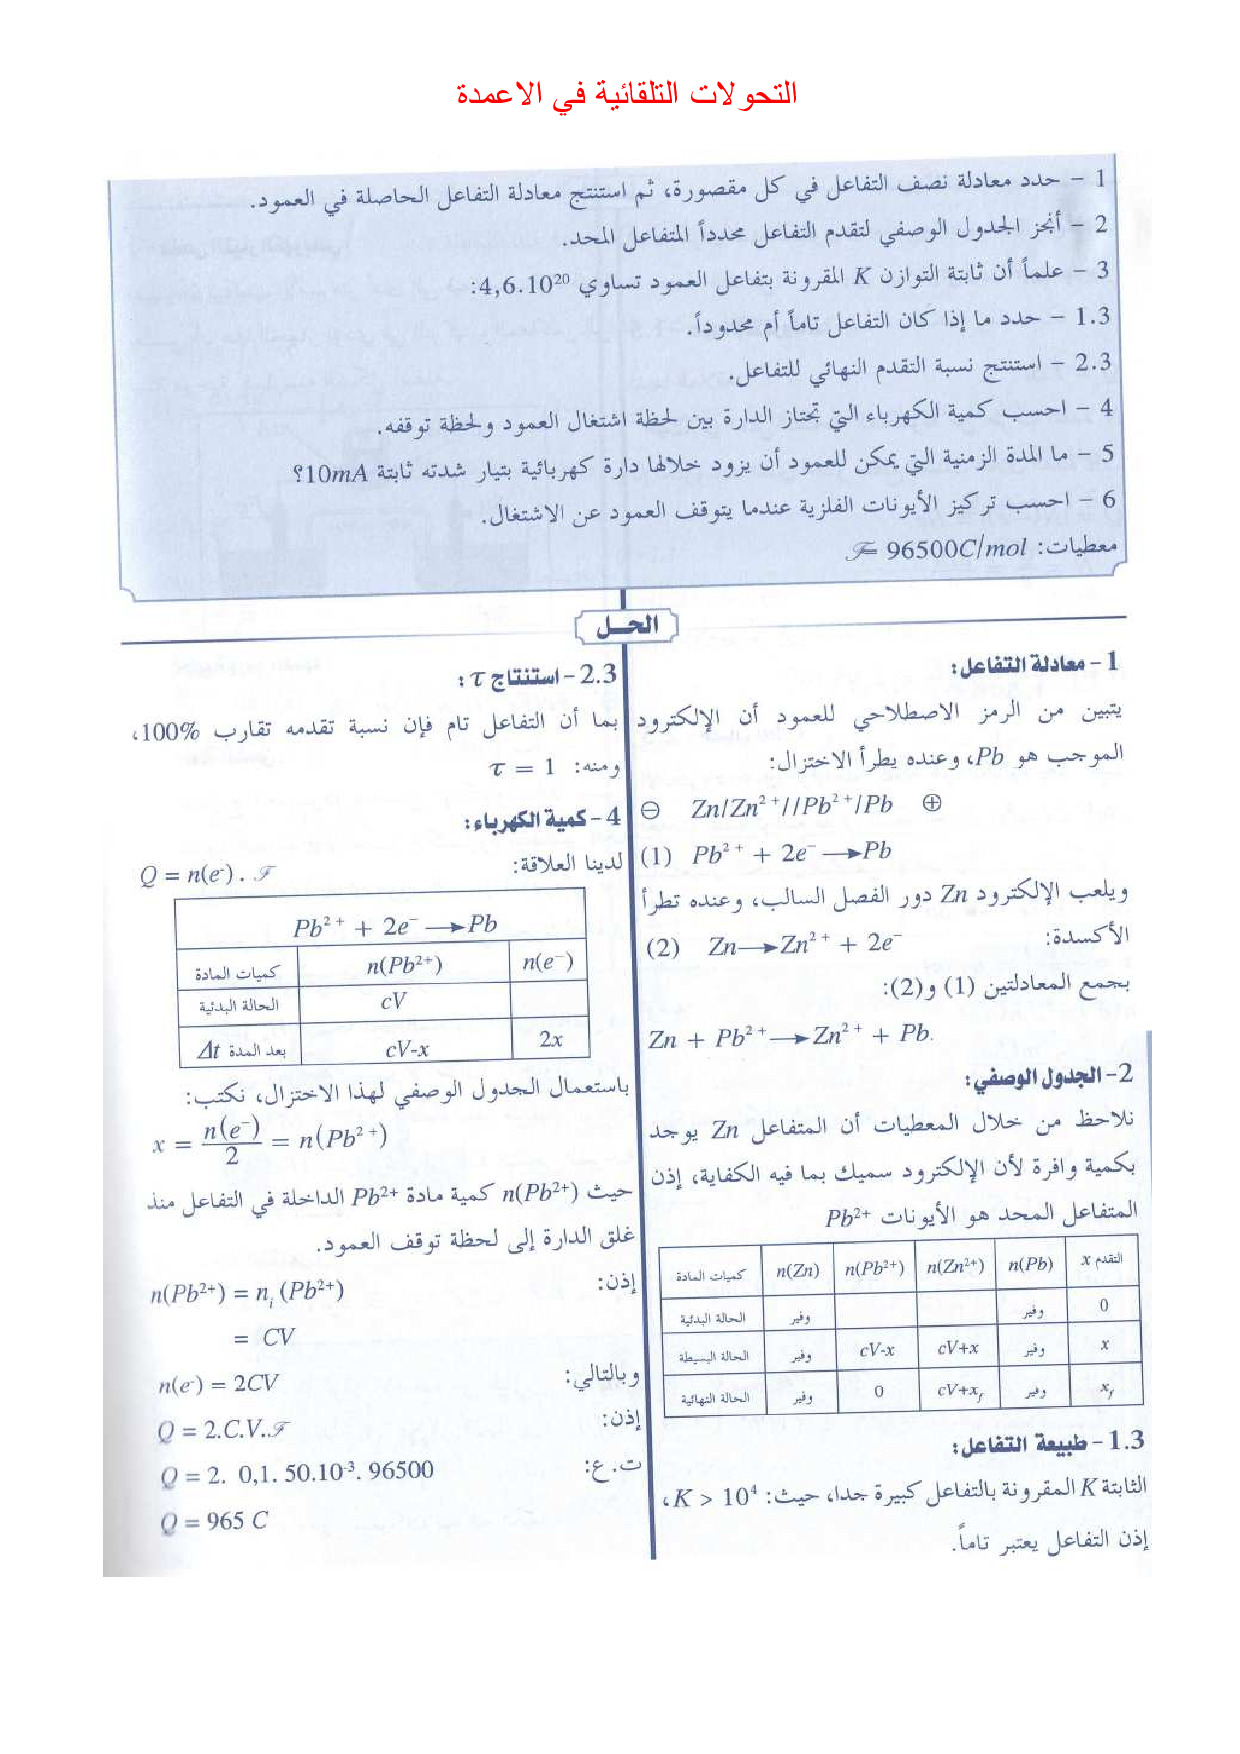 التحولات التلقائية في الاعمدة
1 – حدد معادلة نصف التفاعل في كل مقصورة، ثم استنتج معادلة التفاعل الحاصلة في العمود.
2 – أنجز الجدول الوصفي لتقدم التفاعل محدداً المتفاعل المحد.
3 – علماً أن ثابتة التوازن K المقرونة بتفاعل العمود تساوي 4,6.10²⁰:
1.3 – حدد ما إذا كان التفاعل تاماً أم محدوداً.
2.3 – استنتج نسبة التقدم النهائي للتفاعل.
4 – احسب كمية الكهرباء التي تجتاز الدارة بين لحظة اشتغال العمود ولحظة توقفه.
5 – ما المدة الزمنية التي يمكن للعمود أن يزود خلالها دارة كهربائية بتيار شدته ثابتة 10mA؟
6 – احسب تركيز الأيونات الفلزية عندما يتوقف العمود عن الاشتغال.
معطيات: ℱ= 96500C/mol
الحل
1– معادلة التفاعل:
يتبين من الرمز الاصطلاحي للعمود أن الإلكترود
الموجب هو Pb، وعنده يطرأ الاختزال:
⊖ Zn/Zn²⁺//Pb²⁺/Pb ⊕
(1) Pb²⁺ + 2e⁻ ⟶Pb
ويلعب الإلكترود Zn دور الفصل السالب، وعنده تطرأ
الأكسدة: (2) Zn⟶Zn²⁺ + 2e⁻
بجمع المعادلتين (1) و(2):
Zn + Pb²⁺⟶Zn²⁺ + Pb.
2– الجدول الوصفي:
نلاحظ من خلال المعطيات أن المتفاعل Zn يوجد
بكمية وافرة لأن الإلكترود سميك بما فيه الكفاية، إذن
المتفاعل المحد هو الأيونات Pb²⁺
كميات المادة n(Zn) n(Pb²⁺) n(Zn²⁺) n(Pb) التقدم x
الحالة البدئية وفير وفير 0
الحالة البسيطة وفير cV-x cV+x وفير x
الحالة النهائية وفير 0 cV+x_f وفير x_f
1.3– طبيعة التفاعل:
الثابتة K المقرونة بالتفاعل كبيرة جدا، حيث: K > 10⁴،
إذن التفاعل يعتبر تاماً.
2.3– استنتاج τ:
بما أن التفاعل تام فإن نسبة تقدمه تقارب 100%،
ومنه: τ = 1
4– كمية الكهرباء:
لدينا العلاقة: Q = n(e⁻) . ℱ
Pb²⁺ + 2e⁻ ⟶Pb
كميات المادة n(Pb²⁺) n(e⁻)
الحالة البدئية cV
بعد المدة Δt cV-x 2x
باستعمال الجدول الوصفي لهذا الاختزال، نكتب:
x = n(e⁻)/2 = n(Pb²⁺)
حيث n(Pb²⁺) كمية مادة Pb²⁺ الداخلة في التفاعل منذ
غلق الدارة إلى لحظة توقف العمود.
إذن: n(Pb²⁺) = nᵢ (Pb²⁺)
= CV
وبالتالي: n(e⁻) = 2CV
إذن: Q = 2.C.V..ℱ
ت.ع: Q = 2. 0,1. 50.10⁻³. 96500
Q = 965 C